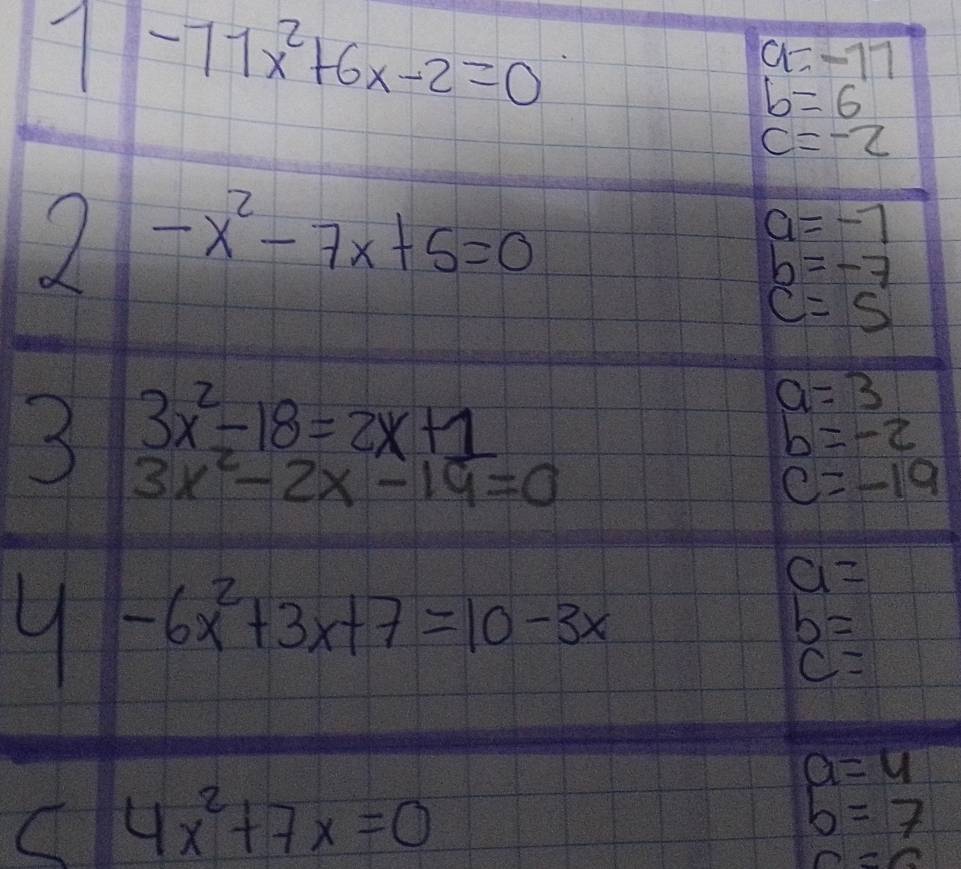 1
-11x²+6x-2=0
a=-11
b=6
c=-2
2
-x²-7x+5=0
a=-1
b=-7
c=5
3
3x²-18=2x+1
3x²-2x-19=0
a=3
b=-2
c=-19
4
-6x²+3x+7=10-3x
a=
b=
c=
5
4x²+7x=0
a=4
b=7